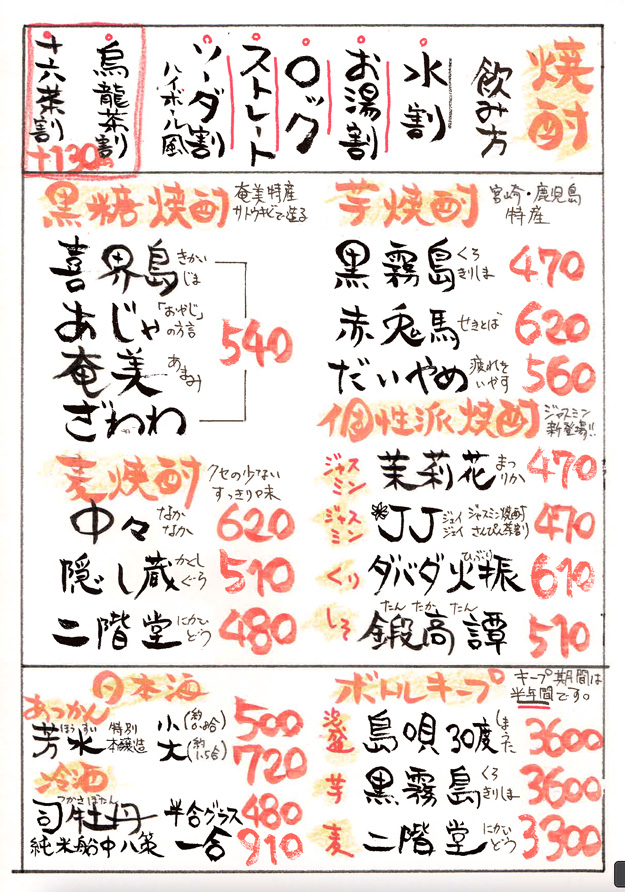 焼酎
飲み方
水割
お湯割
ロック
ストレート
ソーダ割
ハイボール風
烏龍茶割
十六茶割
+130
芋焼酎
宮崎・鹿児島
特産
黒霧島 くろきりしま 470
赤兎馬 せきとば 620
だいやめ 疲れをいやす 560
個性派焼酎
ジャスミン
新登場!!
ジャスミン 茉莉花 まつりか 470
ジャスミン JJ ジェイジェイ ジャスミン焼酎 さんぴん茶割 470
くり ダバダ火振 ひぶり 610
しそ 鍛高譚 たんたかたん 510
黒糖焼酎
奄美特産
サトウキビで造る
喜界島 きかいじま
あじゃ 「おやじ」の方言
奄美 あまみ
ざわわ
540
麦焼酎
クセの少ない
すっきり味
中々 なかなか 620
隠し蔵 かくしぐら 510
二階堂 にかいどう 480
ボトルキープ
キープ期間は
半年間です。
島唄30度 しまうた 3600
芋 黒霧島 くろきりしま 3600
麦 二階堂 にかいどう 3300
日本酒
あつかん
芳水 ほうすい 特別本醸造 小(約0.8合) 500
大(約1.5合) 720
冷酒
司牡丹 つかさぼたん 半合グラス 480
純米船中八策 一合 910